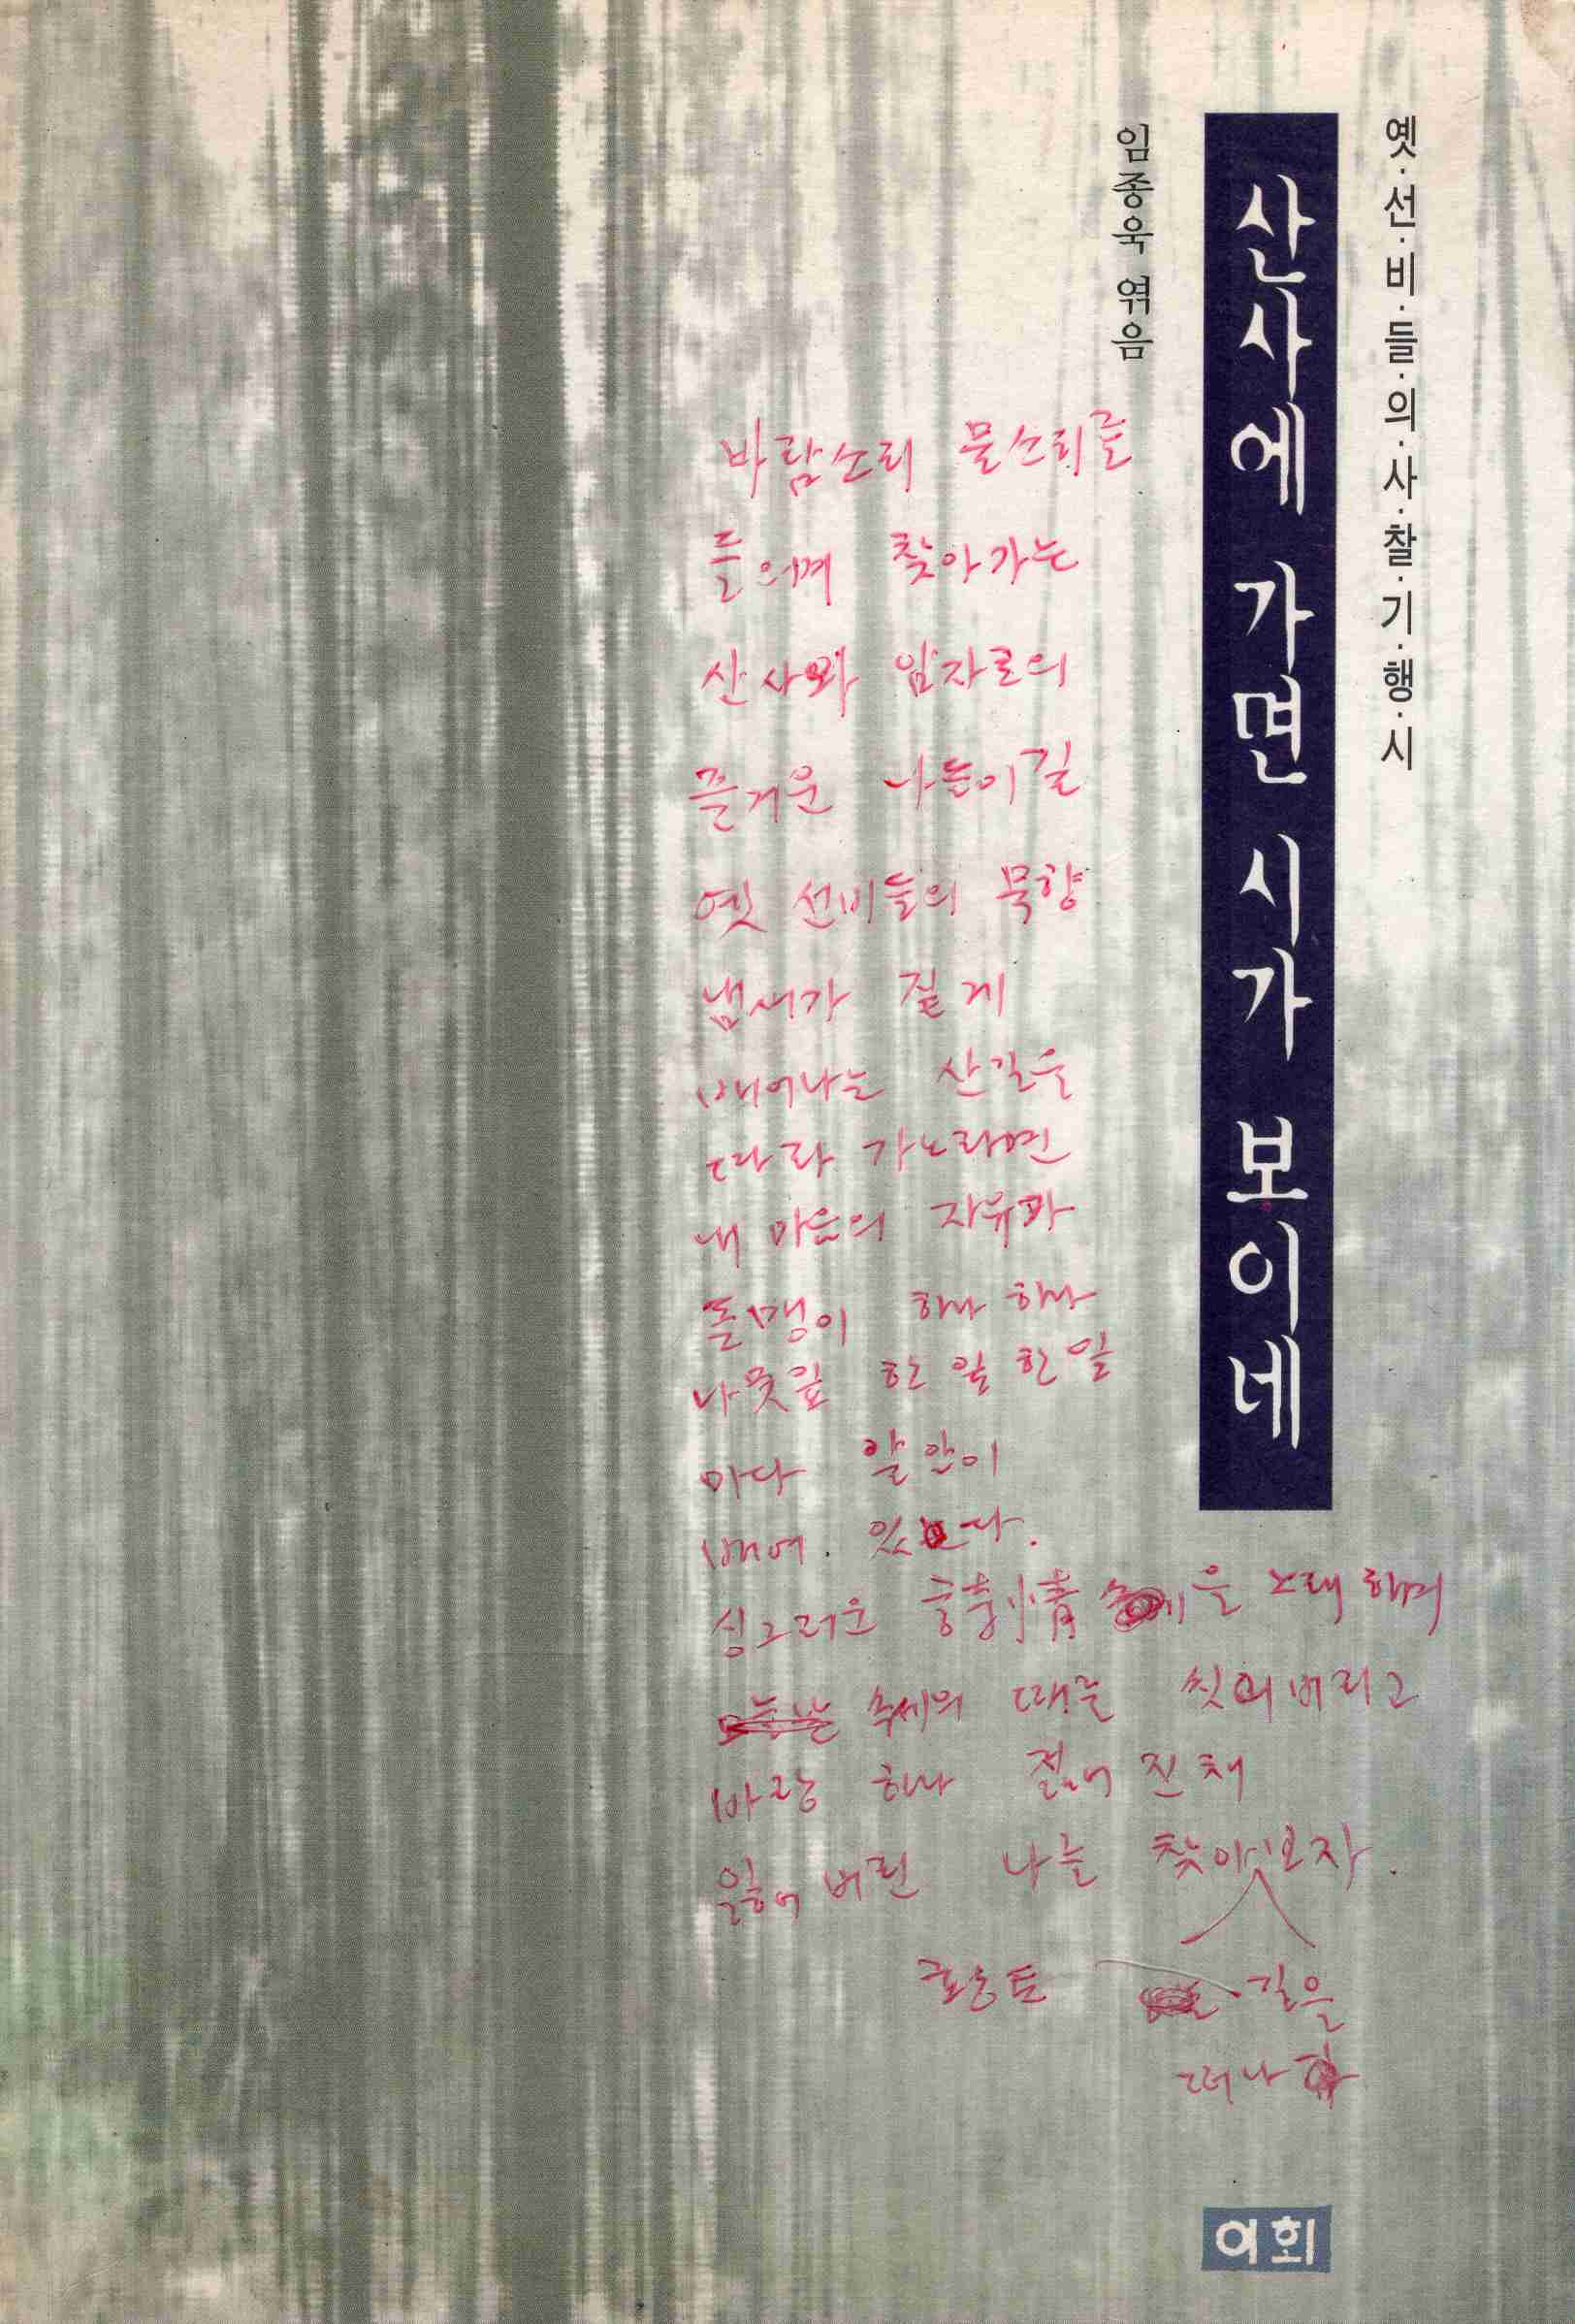 옛·선·비·들·의·사·찰·기·행·시
산사에 가면 시가 보이네
임종욱 엮음
바람소리 물소리를
들으며 찾아가는
산사와 암자로의
즐거운 나들이길
옛 선비들의 묵향
냄새가 짙게
배어나는 산길을
따라 가노라면
내 마음의 자유가
돌멩이 하나 하나
나뭇잎 한 잎 한 잎
마다 알알이
배어 있다.
싱그러운 을 노래하며
속세의 때를 씻어버리고
바랑 하나 짊어진 채
잃어버린 나를 찾아보자.
길을
떠나
여회